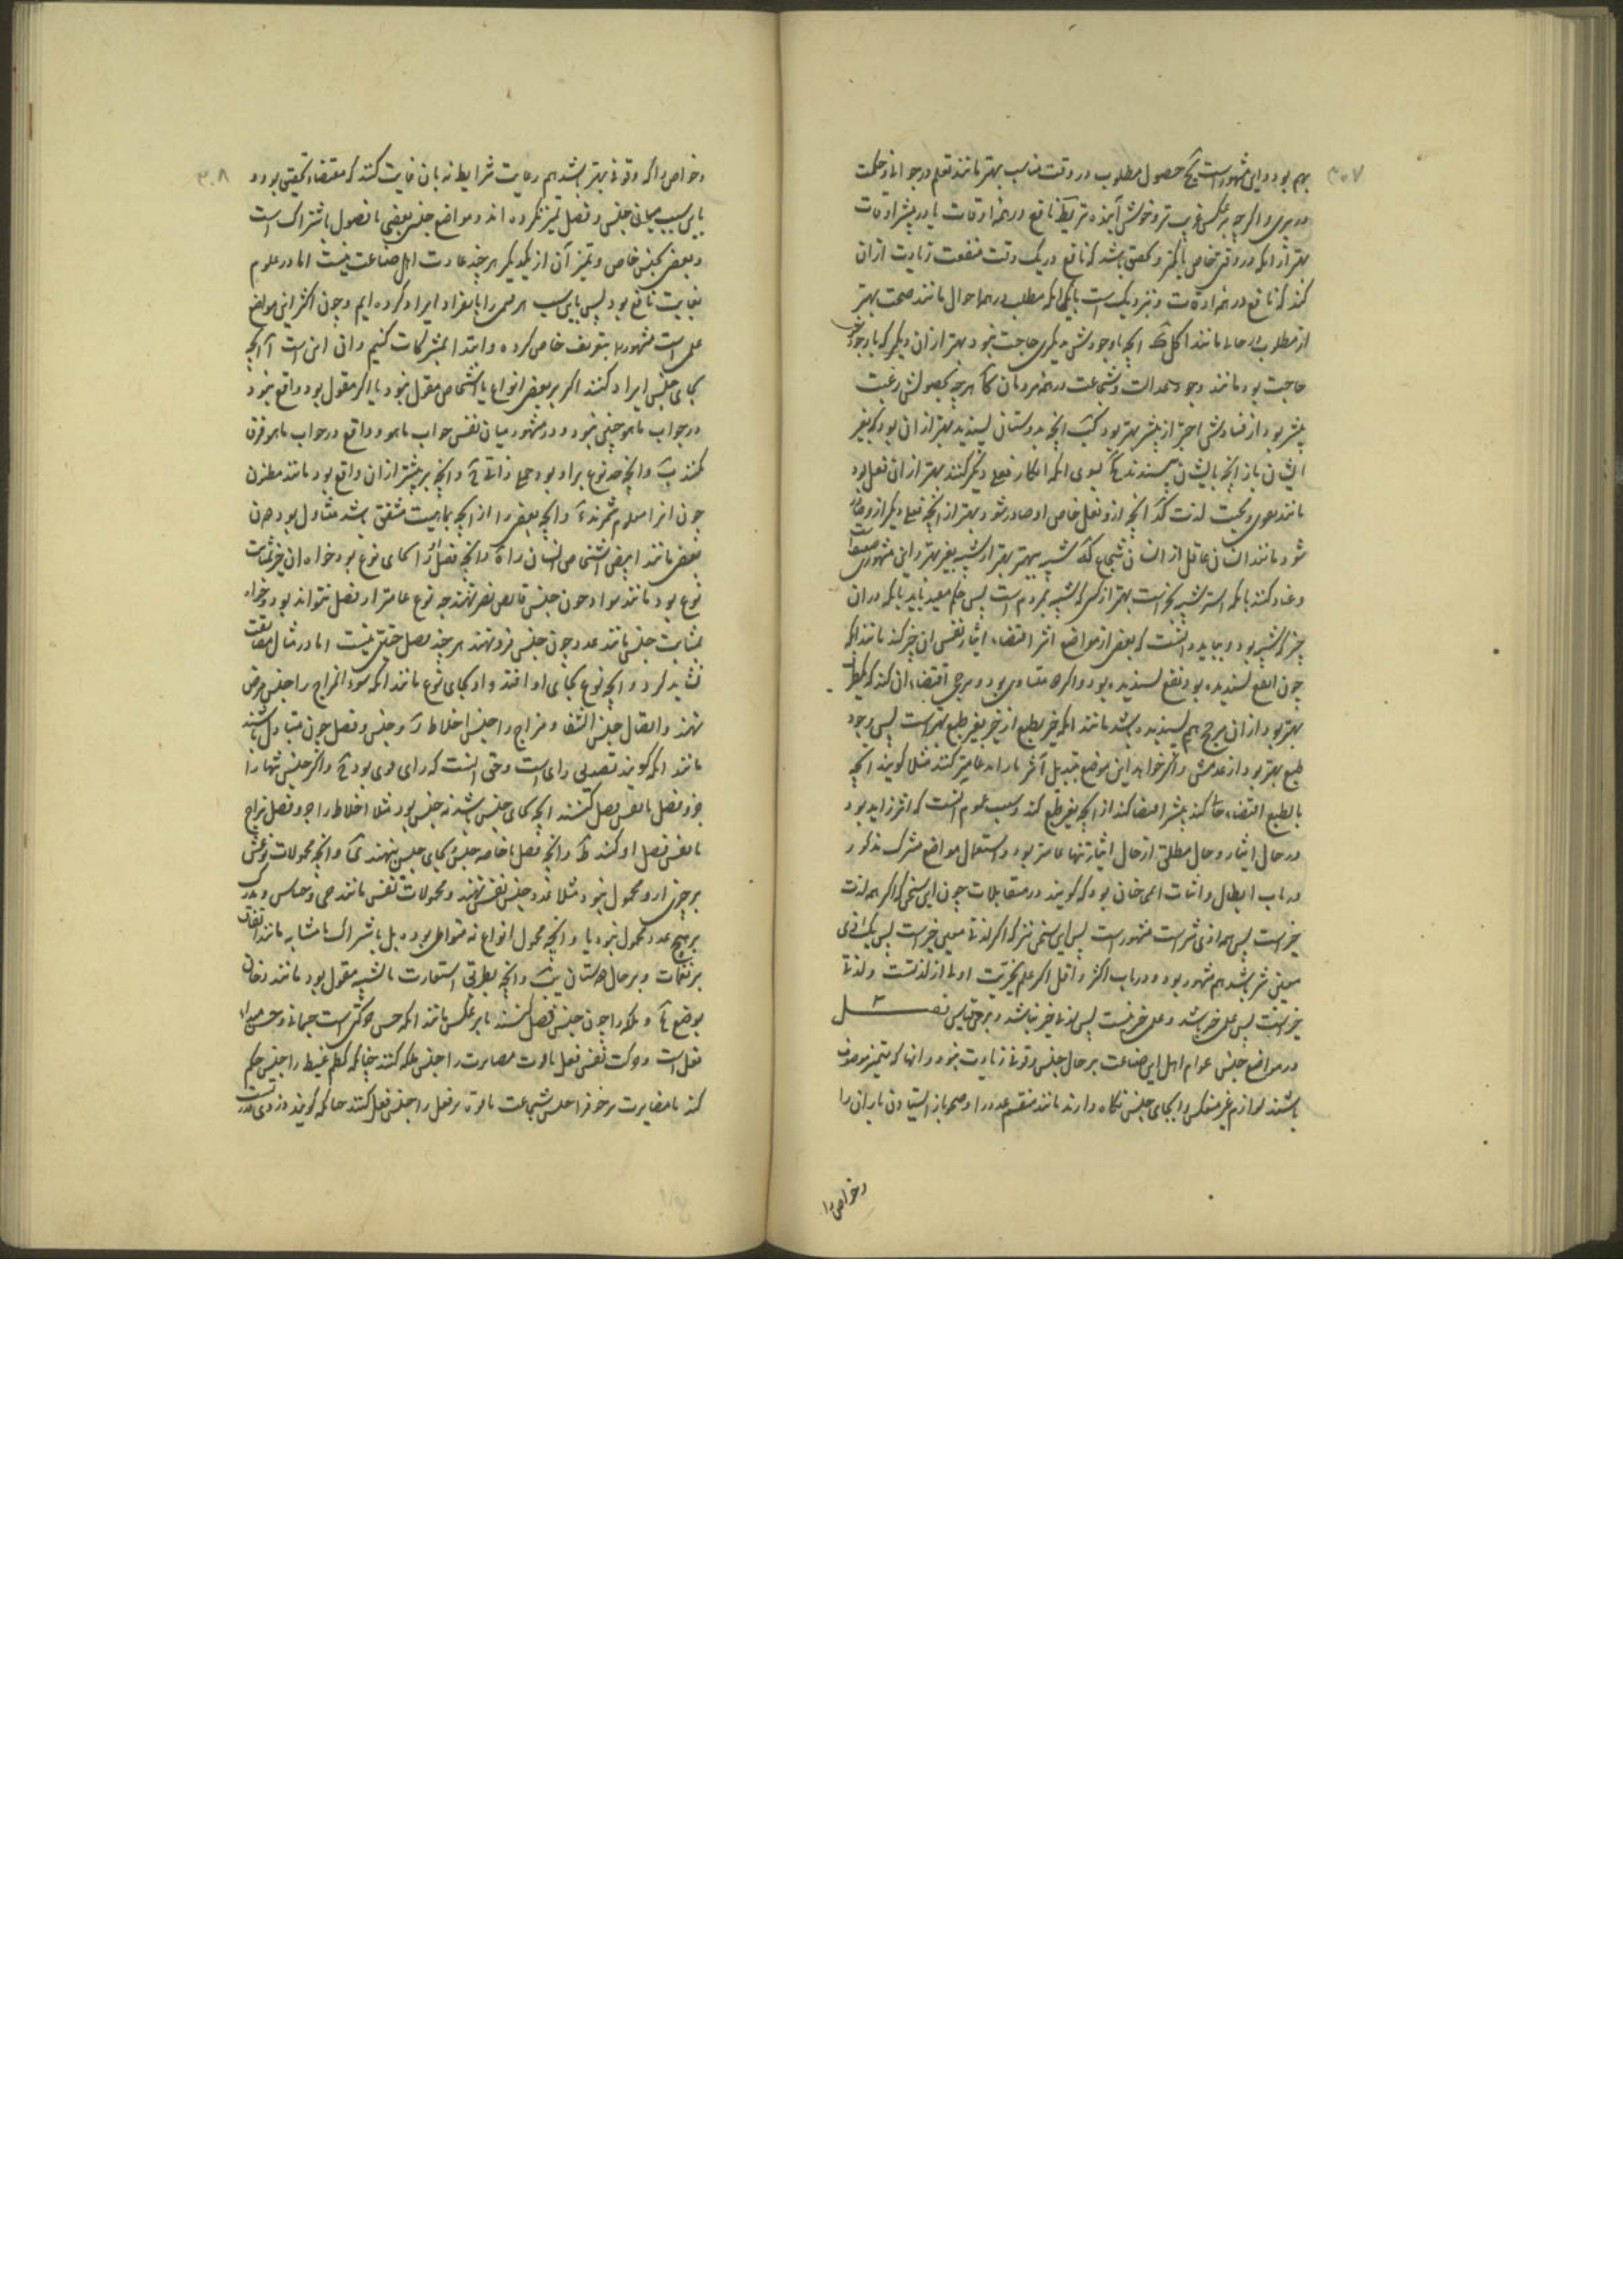 ۳۰۷
بهم بود و این مشهور است یح حصول مطلوب در وقت مناسب بهتر مانند تعلم در جوانی و حکمت
در پیری و اگر چه برعکس غریب‌تر و خوش آینده‌تر نافع در همه اوقات یا در بیشتر اوقات
بهتر از آنکه در وقتی خاص یا کمتر و تحقیق باشد که نافع در یک وقت منفعت زیادت از آن
کند که نافع در همه اوقات و نزدیک است بآنکه مطلب در همه احوال مانند صحت بهتر
از مطلوب در حال مانند اکل آنچه با وجودش بدیگری حاجت نبود بهتر از آن دیگر که با وجودش
حاجت بود مانند وجود عدالت و شجاعت در همه مردمان کا هر چه بحصولش رغبت
بیشتر بود از فسادش احتراز بیشتر بهتر بود کب آنچه بدوستان پسندید بهتر از آن بود که بغیر
ایشان باز آنچه بایشان پسندند سوی آنکه انکار فعلی دیگر کنند بهتر از آن فعل بود
مانند محبت لذت کد آنچه ازو فعل خاص او صادر شود بهتر از آنچه فعلی دیگر ازو صادر
شود مانند انسان عاقل از انسان شجاع که شبیه بهتر بهتر از شبیه بغیر بهتر و این مشهور است
و عناد کنند بآنکه استر شبیه بخر است بهتر از کپی که شبیه بمردم است پس حکم مقید باید بآنکه در آن
چیز که شبیه بود و بباید دانست که بعضی از مواضع اثر اقتضاء ایثار نفس آن چیز کند مانند آنکه
چون انفع پسندیده بود نفع پسندیده بود و اگر چه متساوی بود و مرجح اقتضاء آن کند که بنظر
بهتر بود از آن مرجح هم پسندیده باشد مانند آنکه خیر بطبع از خیر بغیر طبع بهتر است پس وجود
طبع بهتر بود از عدمش و اگر خواهند این موضع بتبدیل آثر را عامتر کنند مثلا گویند آنچه
بالطبع اقتضاء حالی کند بیشتر اقتضا کند از آنچه بغیر طبع کند و سبب عموم آنست که اثر زاید بود
در حال ایثار و حال مطلق از حال ایثار تنها عامتر بود و استعمال مواضع مشترک مذکور
در باب ابطال و اثبات اعمی چنان بود که گویند در متقابلات چون این سخن که اگر همه لذت
خیر است پس همه اذی شر است مشهور است پس این سخن نیز که اگر لذتی معین خیر است پس یک اذی
معین شر باشد هم مشهور بود و در باب اکثر و اقل اگر علم بخیریت اولی از لذتست و لذت
خیر است پس علم خیر باشد و علم خیر نیست پس لذت خیر نباشد و برین قیاس فصل ۳
در مواضع جنس عوام اهل این صناعت بر حال جنس وقوفی زیادت نبود و آنها که بتمیز موصوف
باشند لوازم غیر منعکس را بجای جنس نگاه دارند مانند منقسم عدد را و صحو باز ایستادن باران را
و خواص را
۳۰۸
و خواص را که وقوفی بهتر باشد هم رعایت شرایط نه بآن غایت کنند که مقتضاء تحقیق بود و
باین سبب میان جنس و فصل تمیز نکرده‌اند و مواضع جنس بعضی با فصول باشتراک است
و بعضی بجنس خاص و تمیز آن از یکدیگر هر چند عادت اهل صناعت نیست اما در علوم
بغایت نافع بود پس باین سبب هر قسمی را بانفراد ایراد کرده‌ایم و چون اکثر این مواضع
علمی است مشهور را بتعریف خاص کرده و ابتدا بمشترکات کنیم و آن اینست آ آنچه
بجای جنس ایراد کنند اگر بر بعضی انواع یا اشخاص مقول نبود یا اگر مقول بود واقع نبود
در جواب ما هو جنس نبود و در مشهور میان نفس جواب ما هو و واقع در جواب ما هو فرق
نکنند ب و آنچه حد نوع بر او بود ج ذاتی و آنچه بر بیشتر از آن واقع بود مانند مظنون
چون آنرا معلوم شمرند د و آنچه بعضی را از آنچه بماهیت متفق باشد متناول بود دون
بعضی مانند ابیض اشخاص انسان را ه و آنچه فصل را بجای نوع بود خواه آن جزء بمثابت
نوع بود مانند سواد چون جنس قابض بصر نهند چه نوع عامتر از فصل نتواند بود و خواه
بمثابت جنس مانند عدد چون جنس فرد نهند هر چند فصل حقیقی نیست اما در مثال مناقشت
نشاید کرد و آنچه نوع بجای او افتد و او بجای نوع مانند آنکه سوء المزاج را جنس مرض
نهند و اتصال جنس التقا و مزاج را جنس اخلاط ز و جنس و فصل چون متبادل باشند
مانند آنکه گویند تصدیق رای است و حق آنست که رای قوی بود ح و اگر جنس تنها را
جزو فصل یا نفس فصل کنند آنچه بجای جنس باشد نه جنس بود مثلا اخلاط را جزو فصل مزاج
یا نفس فصل او کنند ط و آنچه فصل یا خاصه جنس بجای جنس بنهند ی و آنچه محمولات نوعش
بر چیزی ازو محمول نبود مثلا عدد جنس نفس نهند و محمولات نفس مانند حی و حساس و مدرک
بر هیچ عدد محمول نبود یا و آنچه محمول انواع نه متواطی بود بل باشتراک یا مشابه مانند اتفاق
بر نغمات و بر حال دوستان یب و آنچه بطریق استعارت یا تشبیه مقول بود مانند دخان
بوضع یج و ملکه را چون جنس فعل کنند یا برعکس مانند آنکه حس حرکتی است جسمانی و حس مبدا
فعل است و حرکت نفس فعل یا قوت مصابرت را جنس ملکه کنند چنانکه کظم غیظ را جنس حلم
کنند یا مصابرت بر خوف را جنس شجاعت یا قوت بر فعل را جنس فعل کنند چنانکه گویند دزدی قدرت